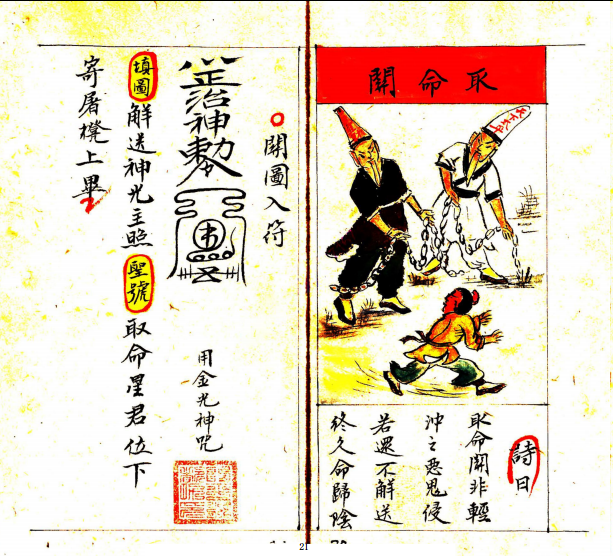 取命關
詩曰
取命關非輕
沖之惡鬼侵
若還不解送
終久命歸陰
關圖入符
治神敕
用金光神咒
填圖 解送神光主照 聖號 取命星君位下
寄屠櫈上畢
21